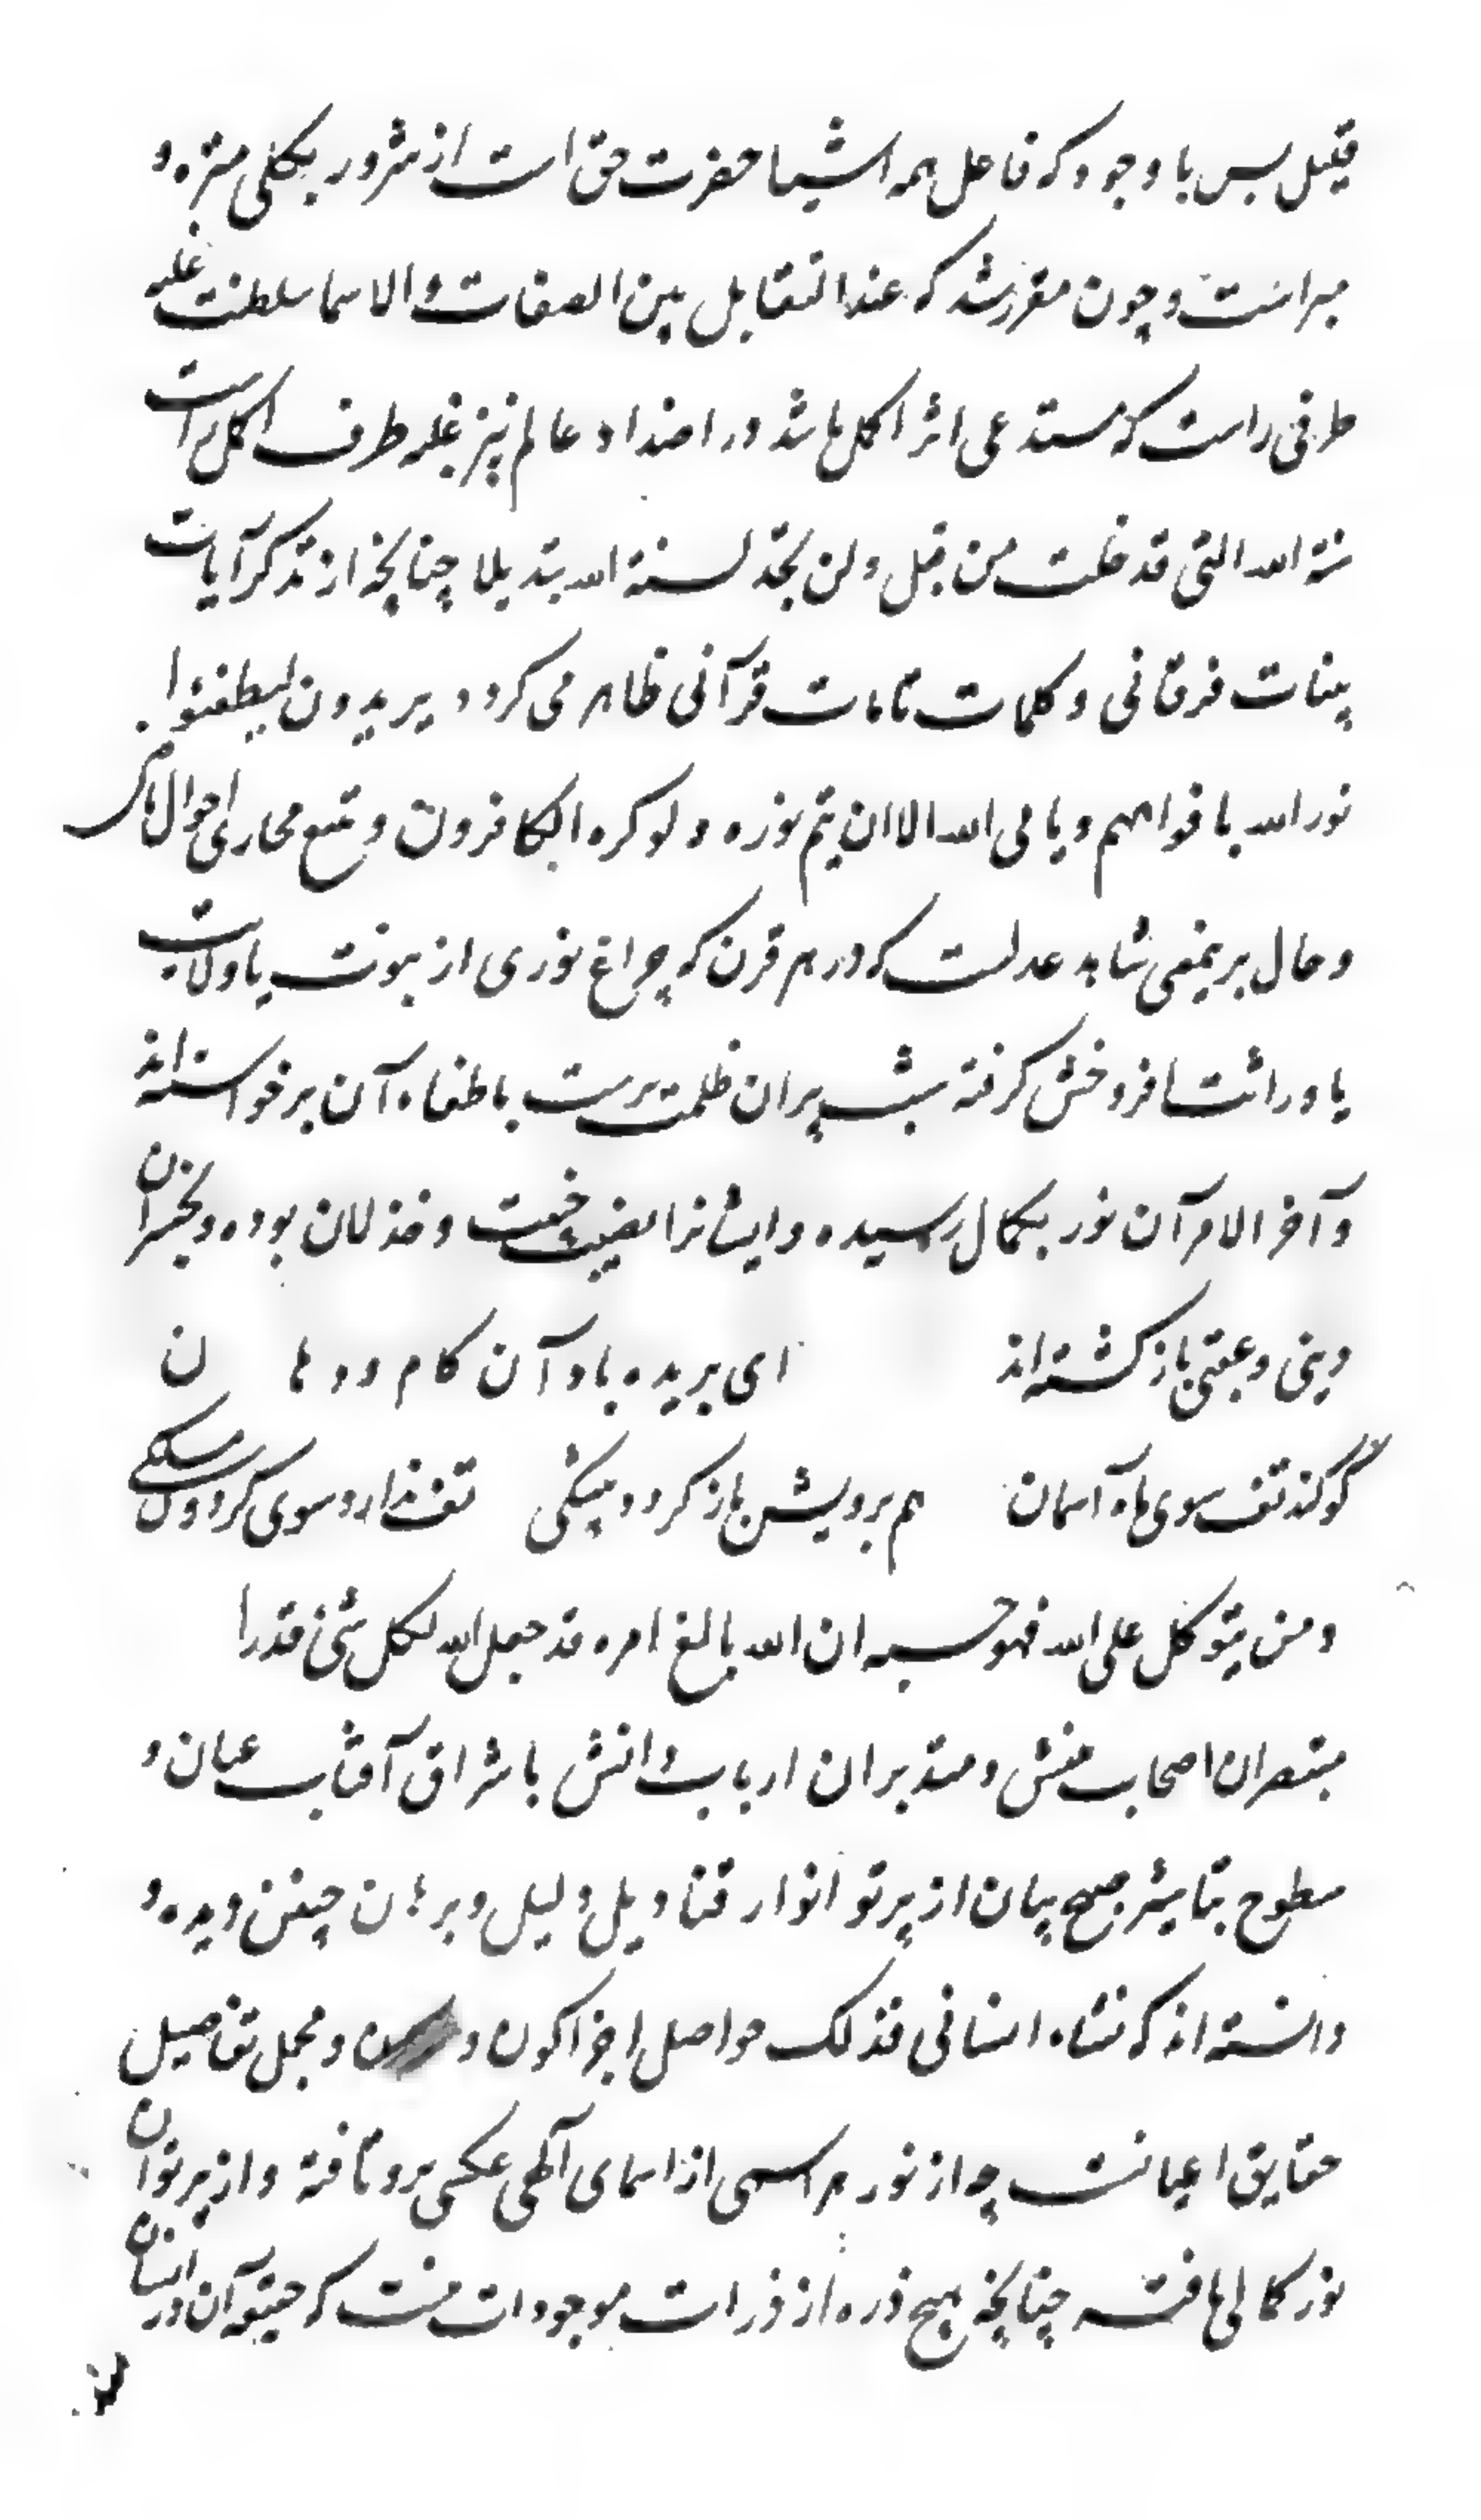 قیل پس با وجود که فاعل همه اشیا حضرت حق است از شرور بکلی منزه و
مبراست و چون مقرر شد که عند التقابل بین الصفات و الاسما سلطنت غلبه
طرفی راست که مستدعی اثر اکمل باشد در اضداد عالم نیز غلبه طرف اکمل راست
سنة الله التی قد خلت من قبل و لن تجد لسنة الله تبدیلا چنانچه از تذکر آیات
بینات فرقانی و کلمات تامات قرآنی ظاهر می کردد یریدون لیطفئوا
نور الله بافواههم و یابی الله الا ان یتم نوره و لو کره الکافرون و تتبع مجاری احوال
و حال برینمعنی شاهد عدلست که در هر قرن که چراغ نوری از نبوت یا ولایت
یا وراثت افروختن کرفته شب پران ظلمت پرست باطفاء آن برخواسته اند
و آخر الامر آن نور بکمال رسیده و ایشانرا نصیب خیبت و خذلان بوده و بخسران
دینی و عقبی باز کشته اند ای بریده باد آن کام و دهان
کو کند تف سوی ماه آسمان هم برویش باز کردد بیشکی تف ندارد سوی کردون مسلکی
و من یتوکل علی الله فهو حسبه ان الله بالغ امره قد جعل الله لکل شئ قدرا
مبتصران اصحاب بینش و متدبران ارباب دانش باشراق آفتاب عیان و
سطوح تباشیر صبح بیان از پرتو انوار قنادیل دلیل و برهان چنین دیده و
دانسته اند که نشاه انسانی فذلک حواصل اجزا کون و و مجمل تفاصیل
حقایق اعیانست چه از نور هر اسمی از اسمای آلهی عکسی برو تافته و از پرتو آن
نور کمالی یافته چنانچه هیچ ذره از ذرات موجودات نیست که حقیقة آن در انسان